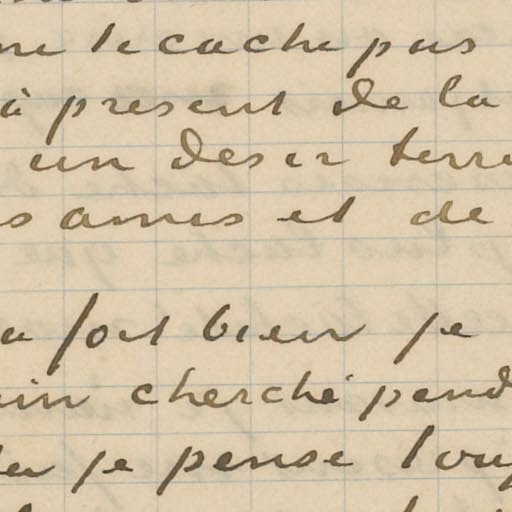 ne te cache pas
à présent de la
un desir terri
s ames et de
a fort bien je
in cherché pend
je pense touj